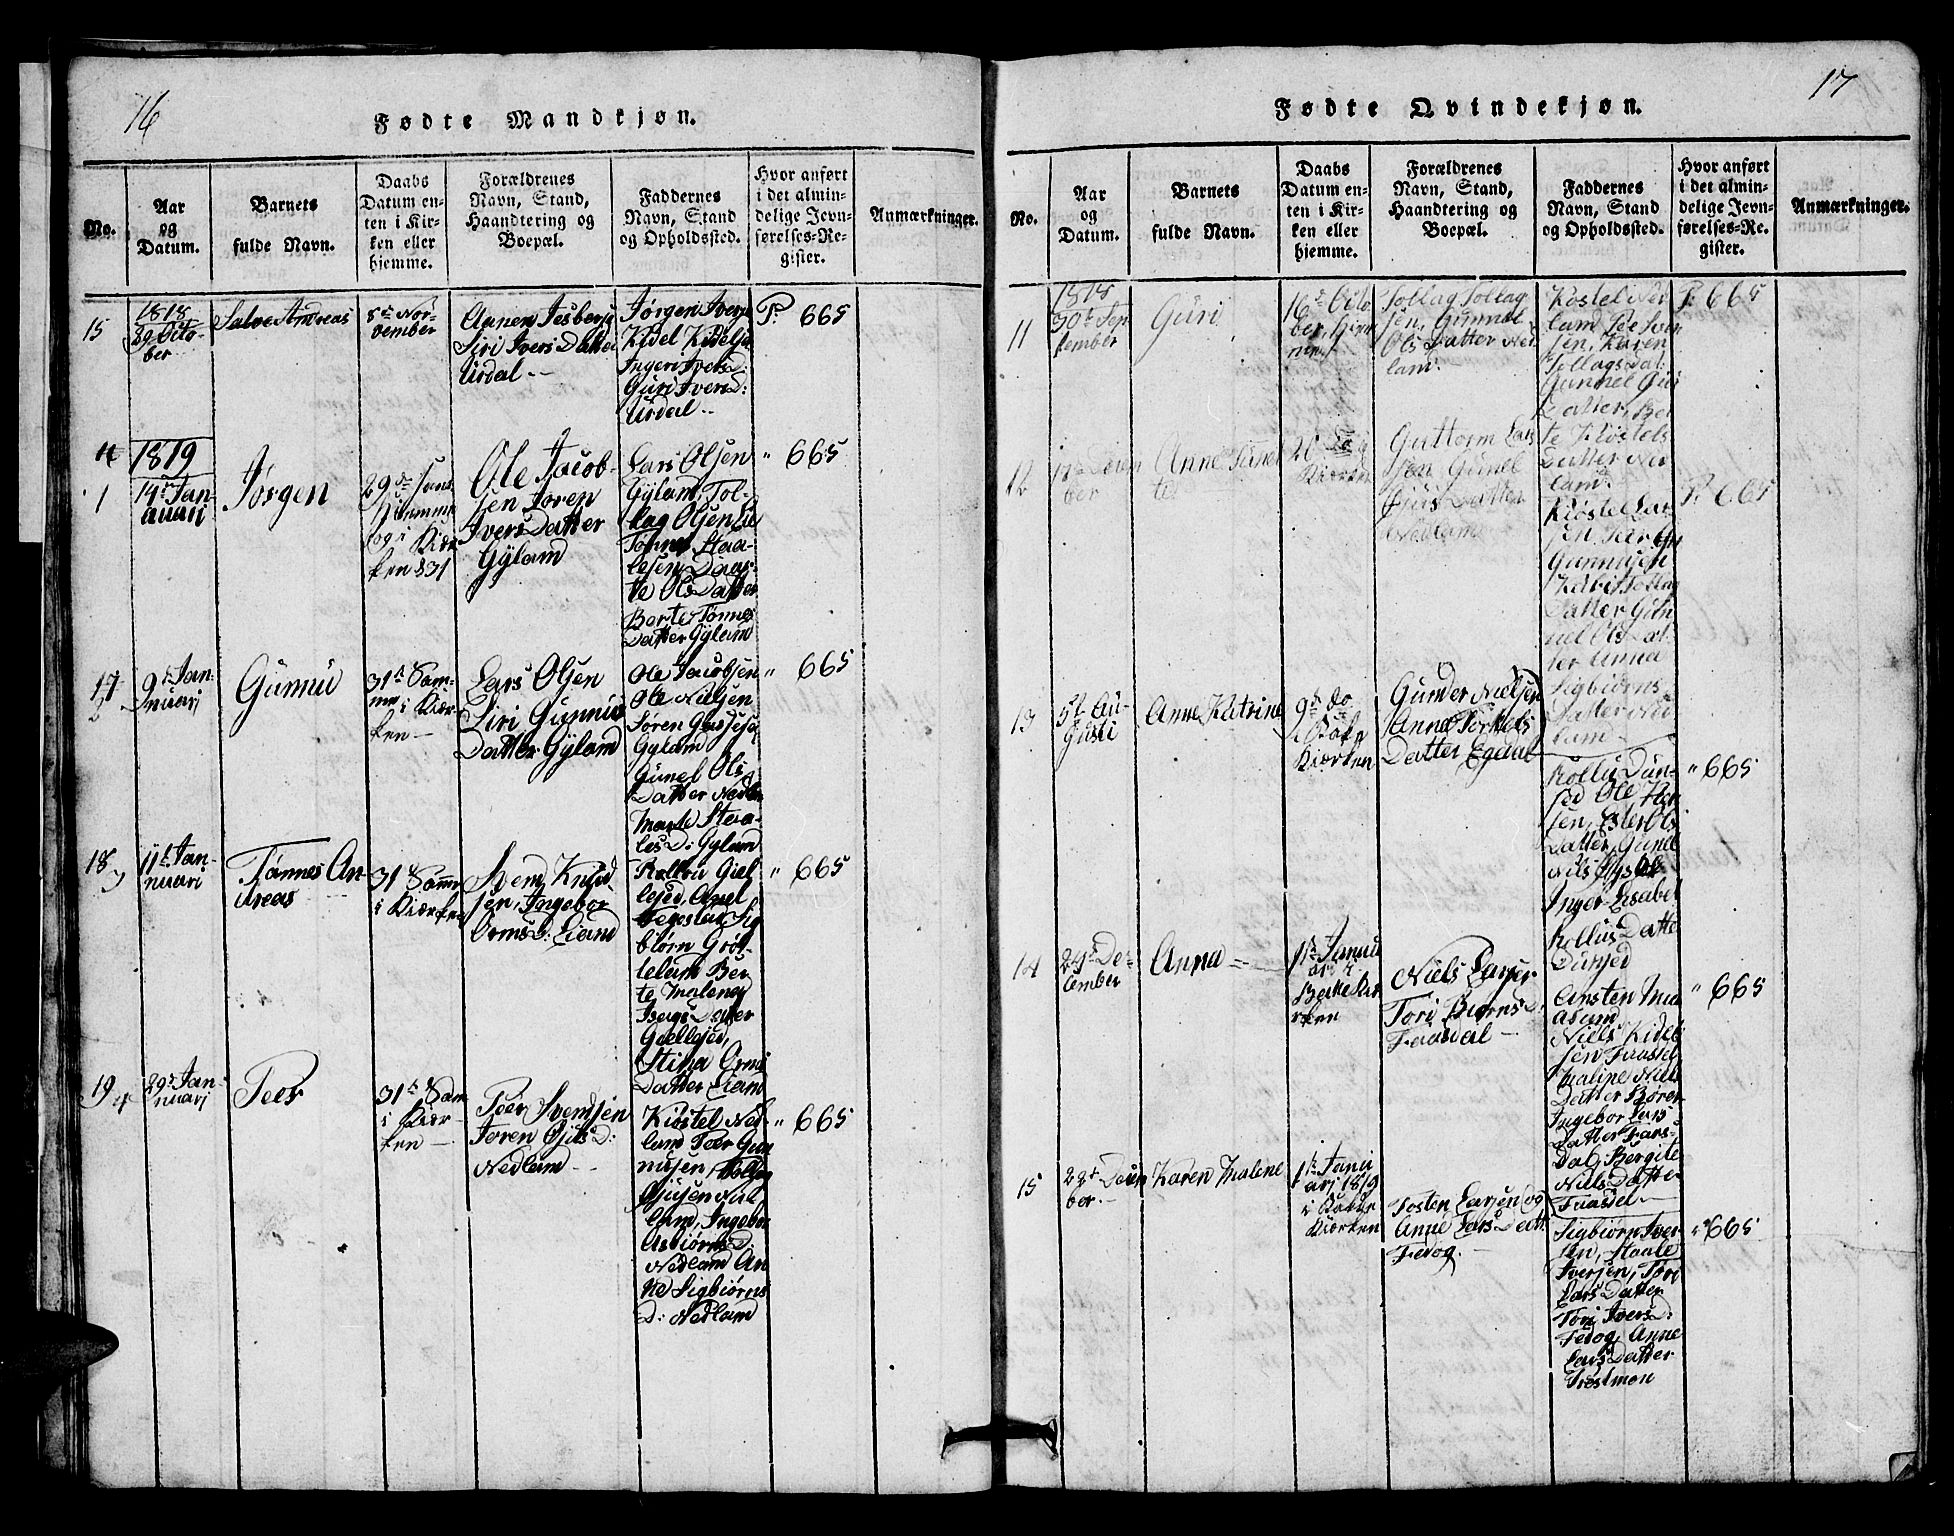 16
Fødte Mandkjøn.
No.
Aar
og
Datum.
Barnets
fulde Navn.
Daabs
Datum en-
ten i Kir-
ken eller
hjemme.
Forældrenes
Navn, Stand,
Haandtering og
Boepæl.
Faddernes
Navn, Stand
og Opholdssted.
Hvor anført
i det almin-
delige Jevn-
førelses-Re-
gister.
Anmærkninger.
15
1818
29 Octo-
ber
Salve Andreas
8de No-
vember
Aanen Jesbers
Siri Ivers Datter
Urdal --
Jørgen Ivers
Kidel Kidels
Ingeri Ivers D:
Guri Ivers D:
Urdal --
P. 665
1819
1
14de Jan-
nuari
Jørgen
29de Jans
Hjemme
og i Kiær-
ken d 31
Ole Jacob-
sen Joren
Ivers Datter
Gyland
Lars Olsen
Gyland, Tol-
lag Olsen
Tønnes Staa-
lesen Daar-
te Ols Datter
Berte Tønnes
Datter Gyland
" 665
17
2
9de Jan-
nuari
Gunnu
31te Sam-
me i Kiær-
ken —
Lars Olsen
Siri Gunnis
Datter Gyland
Ole Jacobsen
Ole Nielsen
Søren
Gyland
Gunel Ols
Datter
Marte Staa-
les D: Gyland
" 665
18
3
11te Jan-
nuari
Tønnes An-
dreas
31te Samme
i Kiærken
Svend Knud-
sen, Ingebor
Orms D. Eiand
Rollu Giel-
lesed, Axel
Fegeslar, Sig-
biørn Grøt-
teland Ber-
te Malene
Datter
Giellesed,
Stina Orms
Datter Eiand
" 665
19
4
29de Jan-
nuari
Peer
31te Sam
i Kiær-
ken —
Peer Svendsen
Joren Gjils D:
Nedland --
Kiøstel Ned-
land Peer Gun-
nusen, Tollag
Gjusen Ned-
land, Ingebor
Asbiørns D:
Nedland An-
ne Sigbiørns
D: Nedland
" 665
17
Fødte Qvindekjøn.
No.
Aar
og
Datum.
Barnets
fulde Navn.
Daabs
Datum en-
ten i Kir-
ken eller
hjemme.
Forældrenes
Navn, Stand,
Haandtering og
Boepæl.
Faddernes
Navn, Stand
og Opholdssted.
Hvor anført
i det almin-
delige Jevn-
førelses-Re-
gister.
Anmærkninger.
11
1818
30te Sep-
tember
Guri
16de Octo-
ber, Hiem-
me
Tollag Tollag-
sen, Gunnel
Ols Datter Ned-
lam.
Kostel Ned-
land Pee Sven-
sen, Karen
Tollags Dat:
Gunnel Guri
Datter, Ber-
te Kiøstels
Datter Ned-
lam.
P. 665
12
Decem-
ber
Anne
20de
Kiærken
Guttorm Lars-
sen Gunel
Datter
Nedland
Kiøstel Lar-
sen, Peer
Gunnusen
Tollag
Datter Gun-
nel Ols Dat-
ter Anna
Sigbiørns
Datter Ned-
lam —
P. 665
13
5te Au-
gusti
Anne Katrine
9de do
i Bake
Kiærken
Gunder Nielsen
Anne Torkels
Datter Egedal
Rollu Dun-
sed Ole
sen, Ester Ols
Datter, Gunel
Nils
Inger Lisabet
Rollus Datter
Dunsed
" 665
14
24de De-
cember
Anna —
1te Januu
arj i
Bakke Kir
rken
Niels Larsen
Tori Biørns D.
Faasdal —
Ansten Mu-
asund
Niels Kidel-
sen Faasdel
Maline Niels
Datter
Ingebor Lars
Datter Fars-
dal, Bergite
Niels Datter
Faasdel —
" 665
15
28de Decem
ber. —
Karen Malene
1te Janu
arj 1819
i Bakke
Kiærken
Tosten Larsen og
Anne Lars Datt.
Fedog. —
Sigbiørn Iver-
sen, Staale
Iversen, Tori
Lars Datter
Tori Ivers D:
Fedog, Anne
Lars Datter
Trøstmon
" 665